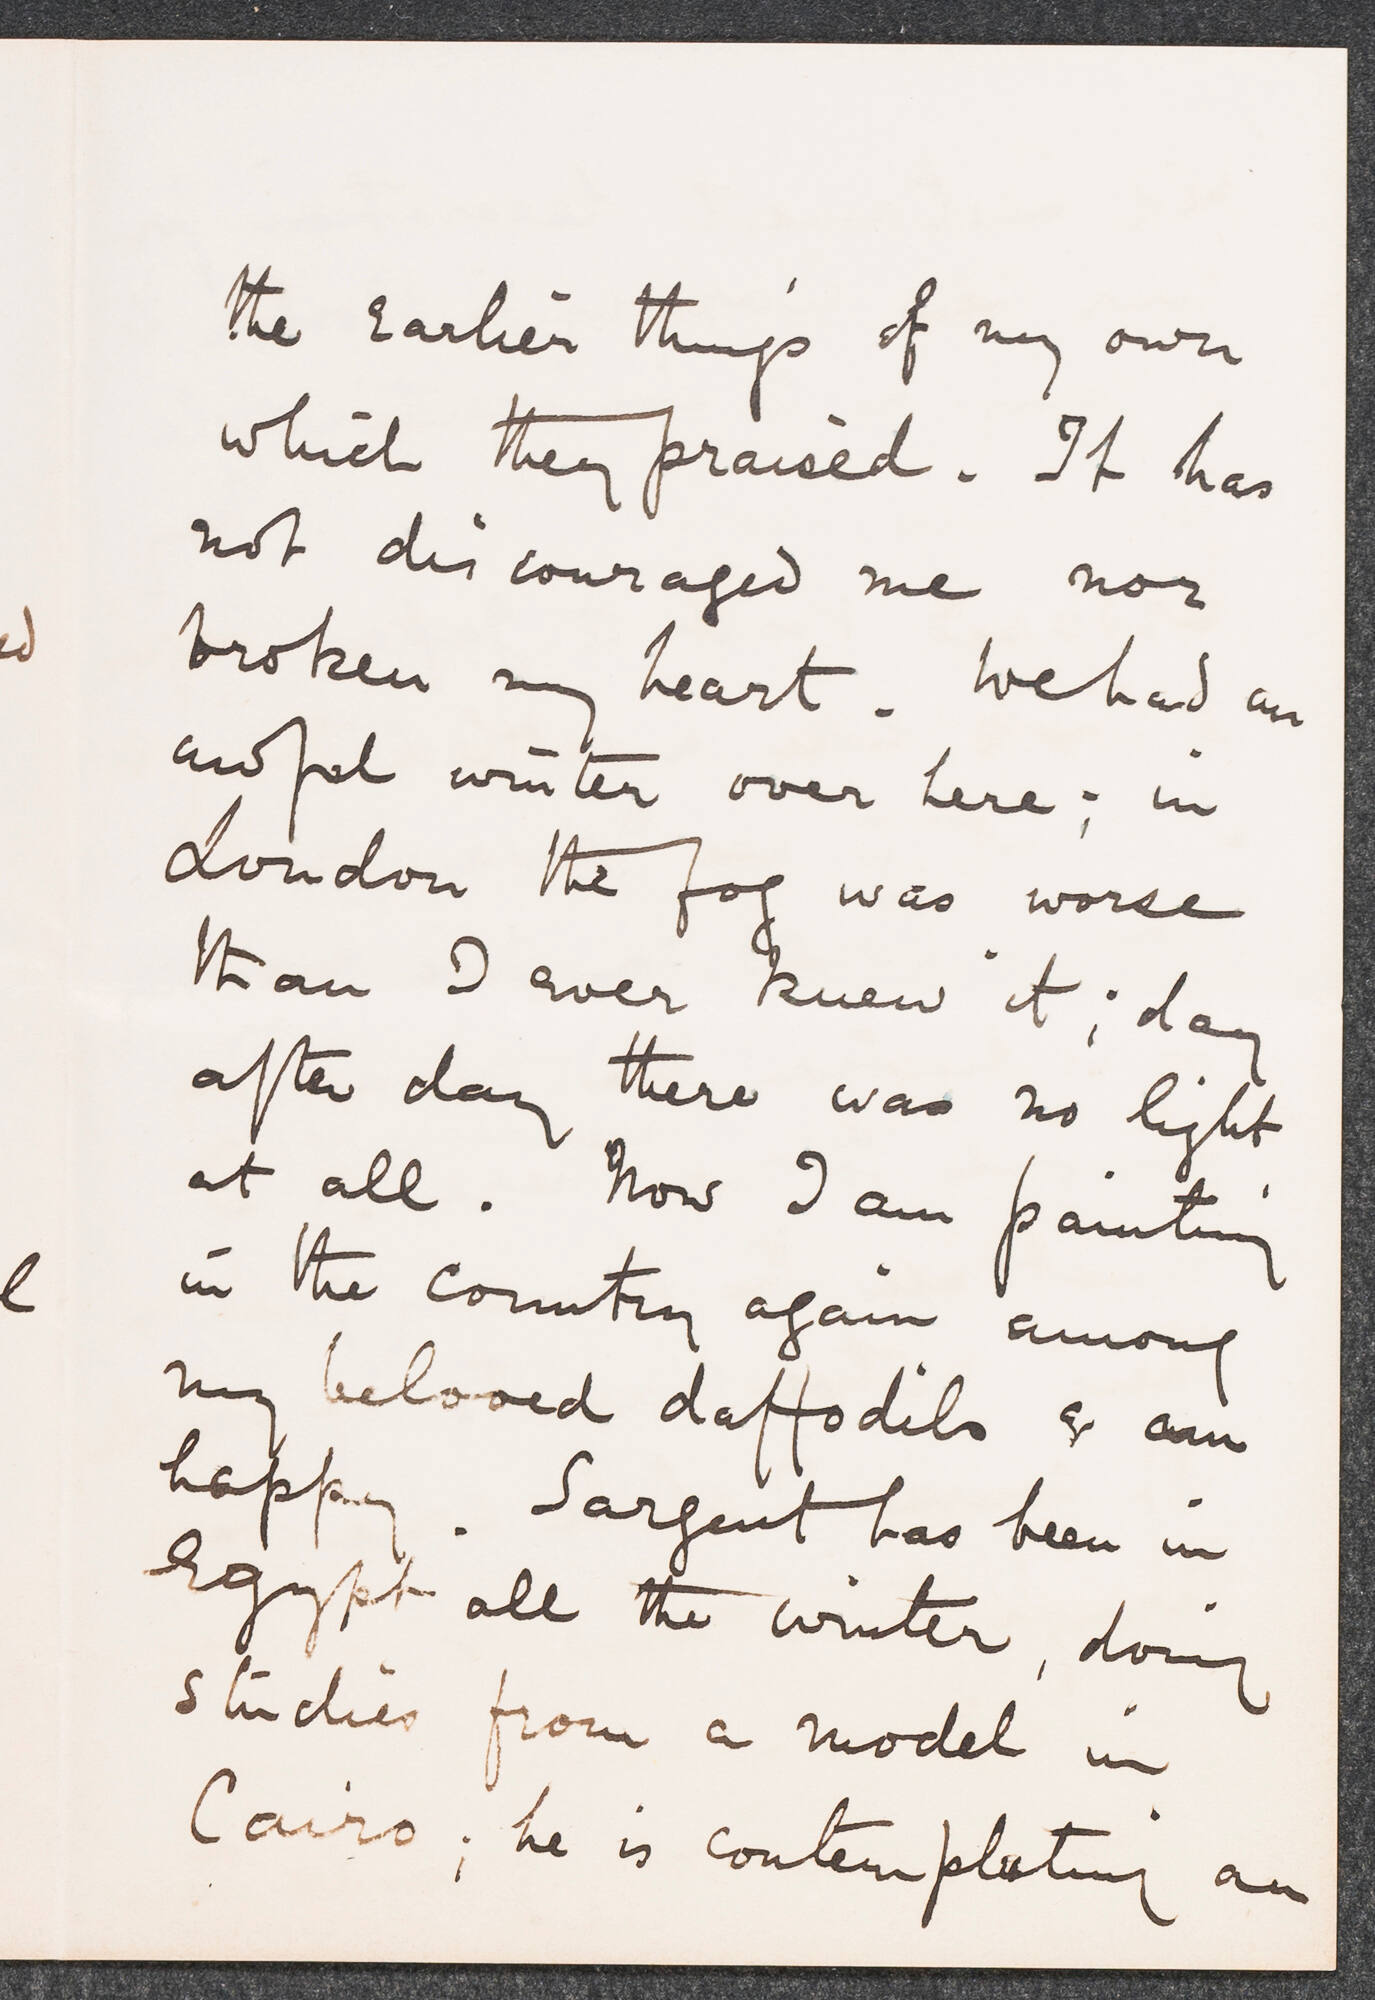 the earlier things of my own
which they praised. It has
not discouraged me nor
broken my heart. We had an
awful winter over here; in
London the fog was worse
than I ever knew it; day
after day there was no light
at all. Now I am painting
in the country again among
my beloved daffodils & am
happy. Sargent has been in
Egypt all the winter, doing
studies from a model in
Cairo; he is contemplating an